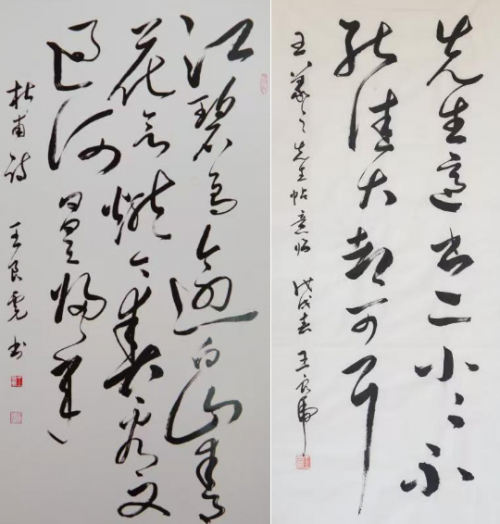 江碧鸟逾白山青
花欲燃今春看又
过何日是归年
杜甫诗 王良虎书
先生适书亦小小不
能佳大都可耳
王羲之先生帖意临 戊戌春 王良虎